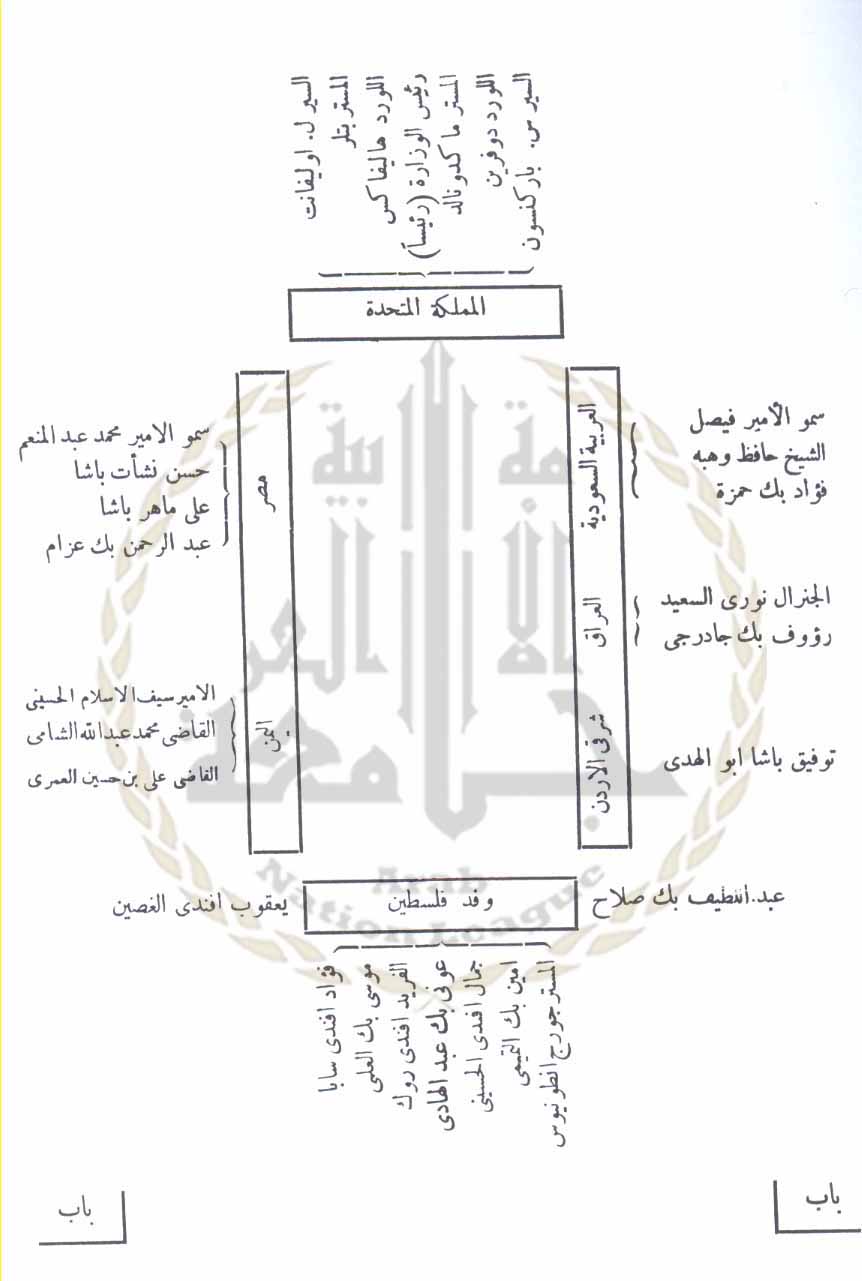 السير س. باركنسون
اللورد دوفرين
المستر ماكدونالد
رئيس الوزارة (رئيساً)
اللورد هاليفاكس
المستر بتلر
السير ل. اوليفانت
المملكة المتحدة
العربية السعودية
سمو الأمير فيصل
الشيخ حافظ وهبه
فؤاد بك حمزة
العراق
الجنرال نورى السعيد
رؤوف بك جادرجى
شرق الاردن
توفيق باشا ابو الهدى
مصر
سمو الامير محمد عبد المنعم
حسن نشأت باشا
على ماهر باشا
عبد الرحمن بك عزام
اليمن
الامير سيف الاسلام الحسينى
القاضى محمد عبد الله الشامى
القاضى على بن حسين العمرى
عبد اللطيف بك صلاح
وفد فلسطين
يعقوب افندى الغصين
المستر جورج انطونيوس
امين بك التميمى
جمال افندى الحسينى
عونى بك عبد الهادى
الفريد افندى روك
موسى بك العلمى
فؤاد افندى سابا
باب
باب
جامعة
الأمة العربية
Arab
Nation League